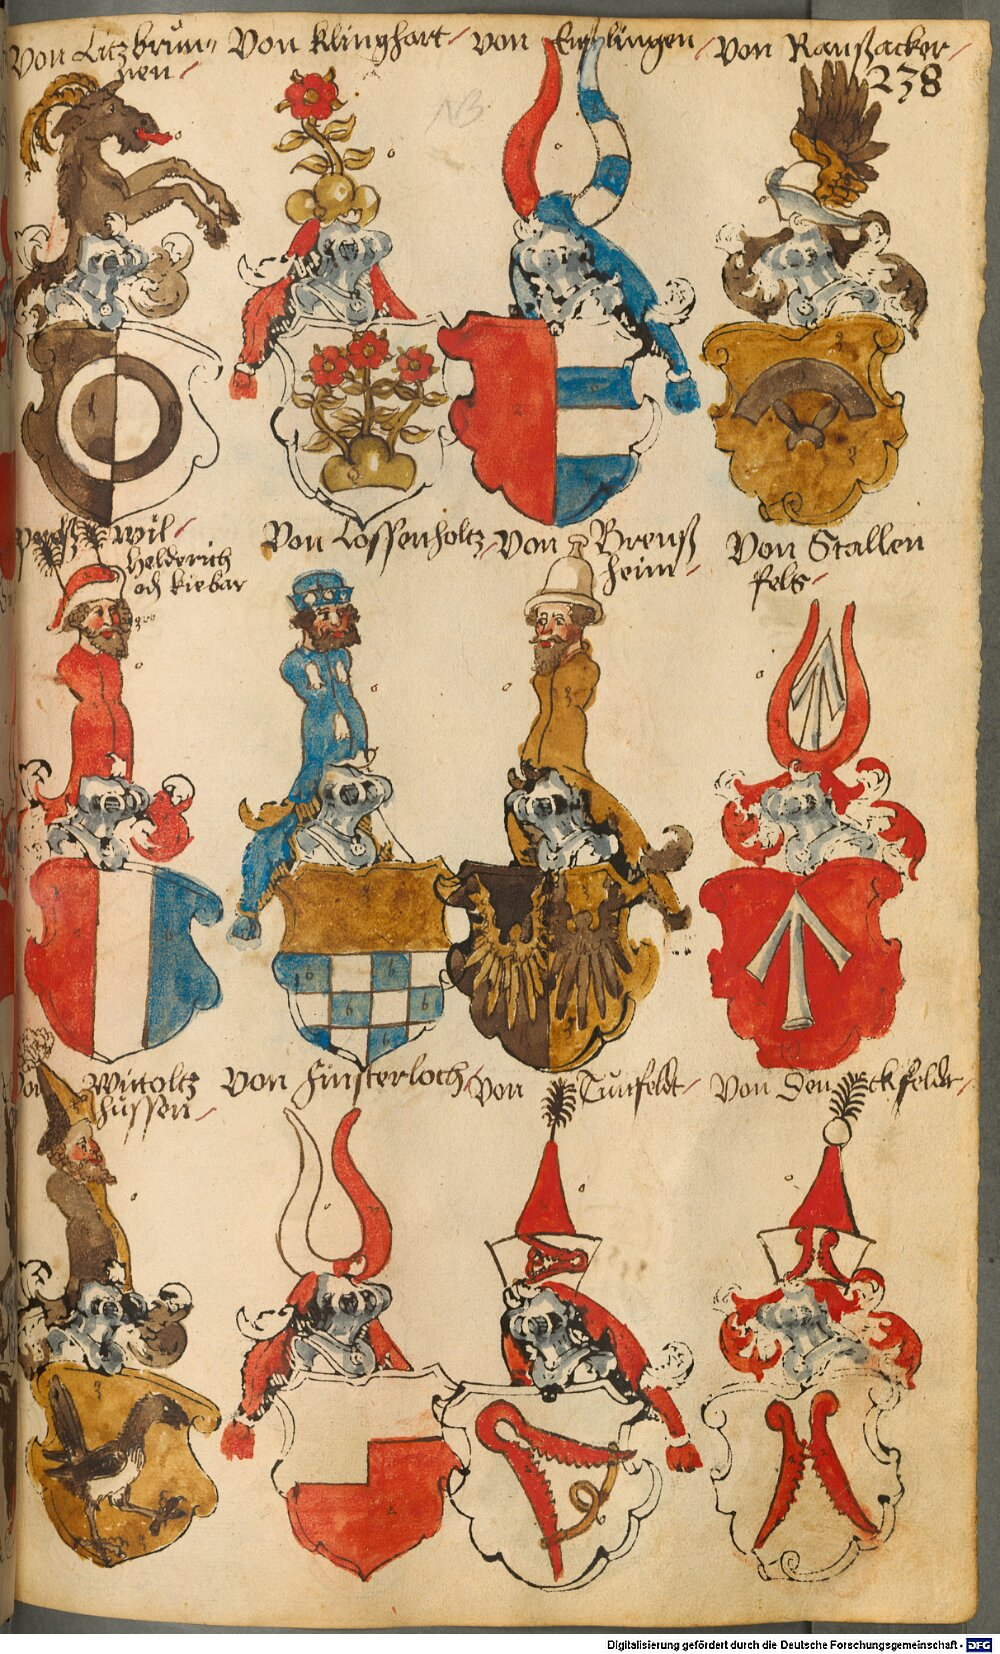 Von Litzbrun-
nen
Von Klinghart
von Emhlingen
von Ranßacker
238
NB.
wil
helderich
och kiebar
Von Lossenholtz
Von Breuß
heim
Von Stallen
fels
Von Witoltz
hussen
Von Finsterloch
Von Tunfeldt
Von Den ckfeldt
Digitalisierung gefördert durch die Deutsche Forschungsgemeinschaft - DFG